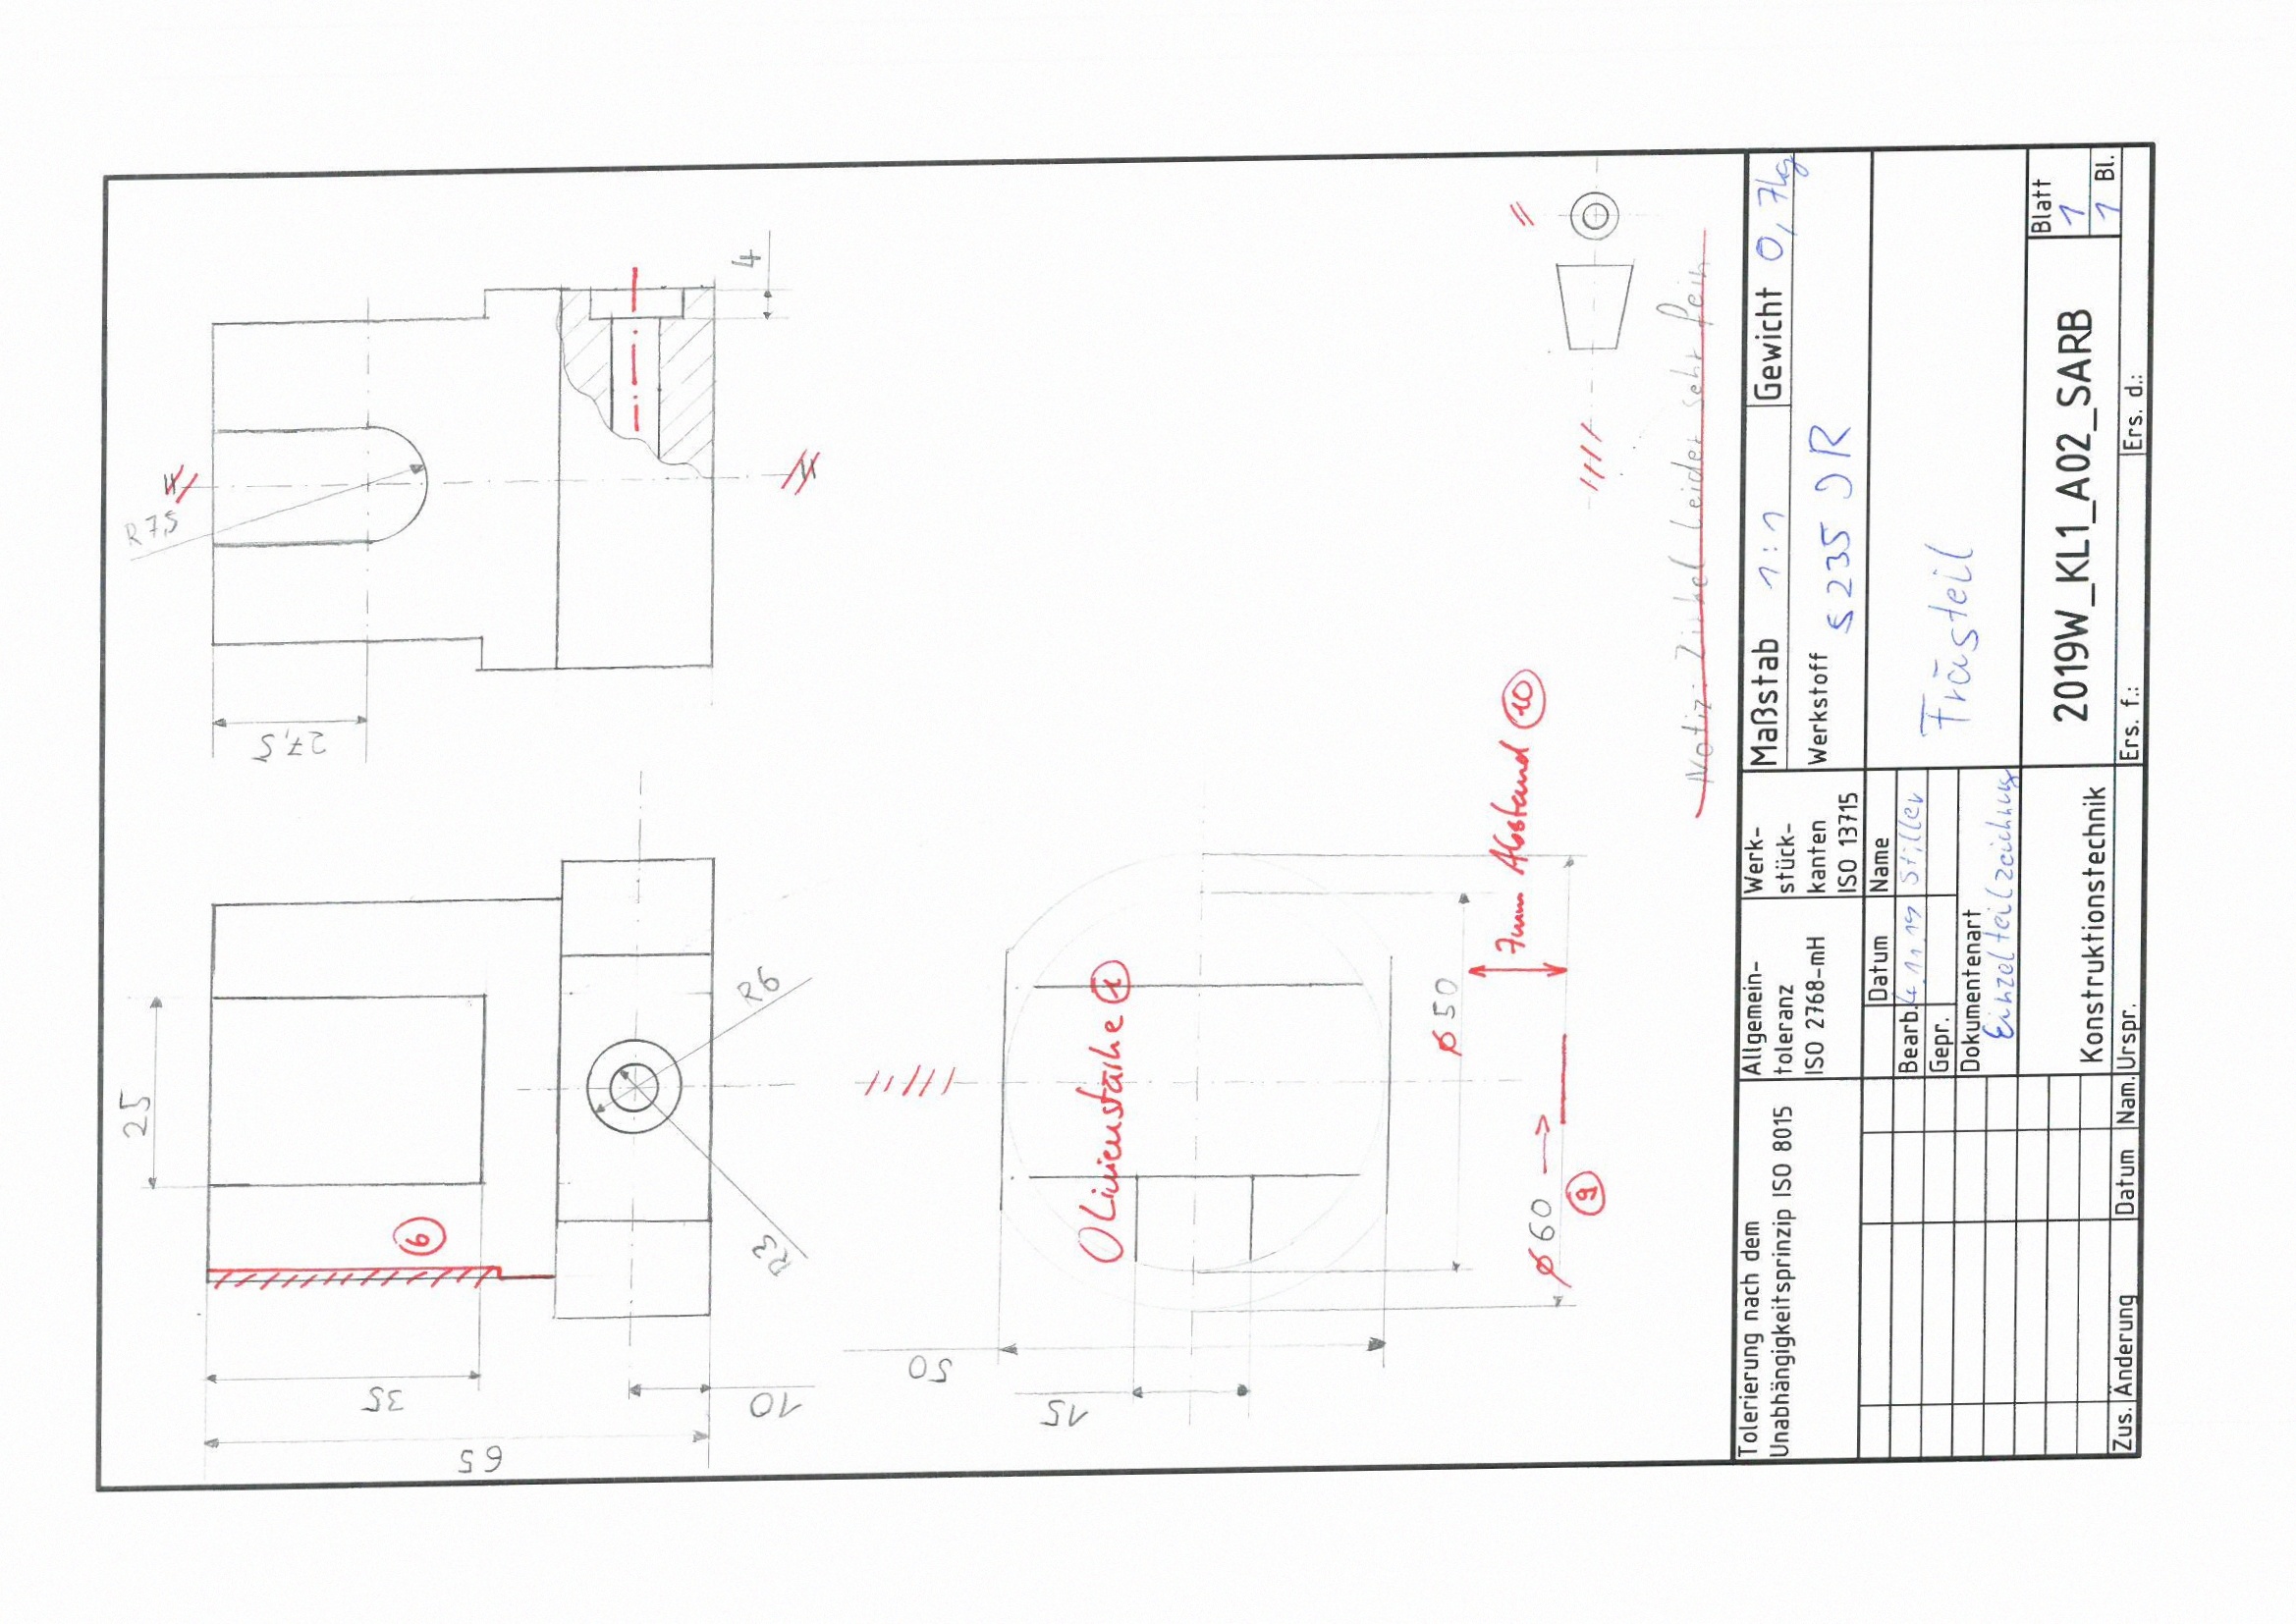 R7,5
27,5
4
25
35
65
10
R6
R3
6
Linienstärke 1
50
15
ø 50
ø 60 →
9
7mm Abstand 10
Notiz: Zirkel leider sehr fein
Tolerierung nach dem
Unabhängigkeitsprinzip ISO 8015
Allgemein-
toleranz
ISO 2768-mH
Werk-
stück-
kanten
ISO 13715
Maßstab 1:1
Gewicht 0,7kg
Werkstoff
S 235 JR
Datum
Name
Bearb. 4.11.19 Stiller
Gepr.
Dokumentenart
Einzelteilzeichnung
Frästeil
Konstruktionstechnik
2019W_KL1_A02_SARB
Blatt
1
1 Bl.
Zus. Änderung
Datum
Nam.
Urspr.
Ers. f.:
Ers. d.: